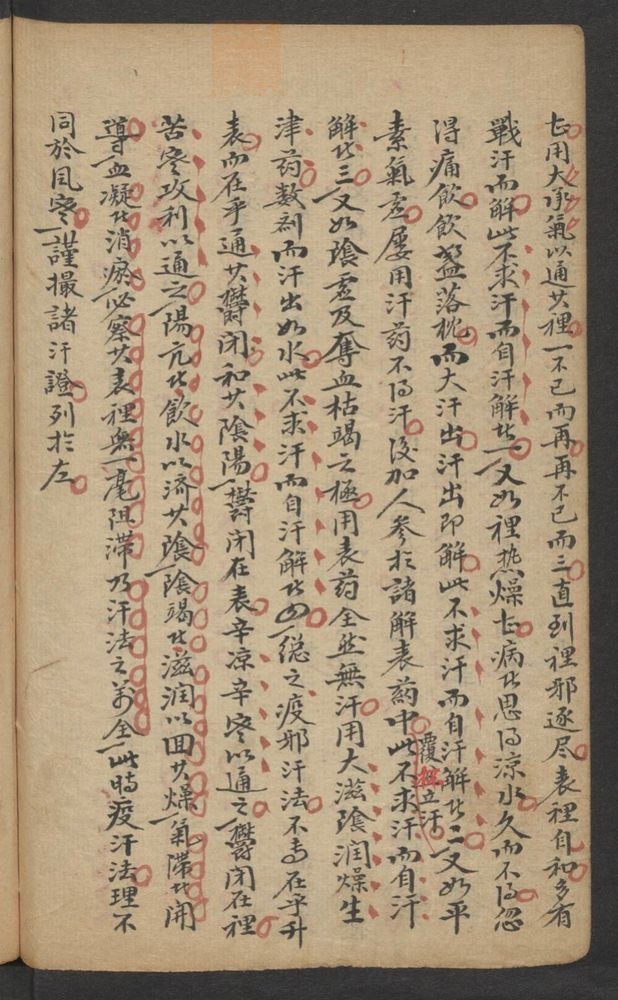 甚用大承氣以通其裡一不已而再再不已而三直到裡邪逐尽表裡自和多有
戰汗而解此不求汗而自汗解者一又如裡热燥甚病者思得涼水久而不得忽
得痛飲飲盌落枕而大汗出汗出即解此不求汗而自汗解者二又如平
素氣虛屢用汗药不得汗後加人參扵諸解表药中覆杯立汗此不求汗而自汗
解者三又如陰虛及奪血枯竭之極用表药全然無汗用大滋陰润燥生
津药数剤而汗出如水此不求汗而自汗解者四總之疫邪汗法不專在乎升
表而在乎通其欝闭和其陰陽欝闭在表辛涼辛寒以通之欝闭在裡
苦寒攻利以通之陽亢者飲水以濟其陰陰竭者滋润以回其燥氣滯者開
導血凝者消瘀必察其表裡無一毫阻滞乃汗法之萬全此時疫汗法理不
同於風寒謹撮諸汗證列扵左